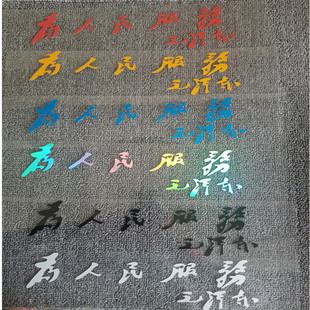 为人民服務
毛泽东
为人民服務
毛泽东
为人民服務
毛泽东
为人民服務
毛泽东
为人民服務
毛泽东
为人民服務
毛泽东